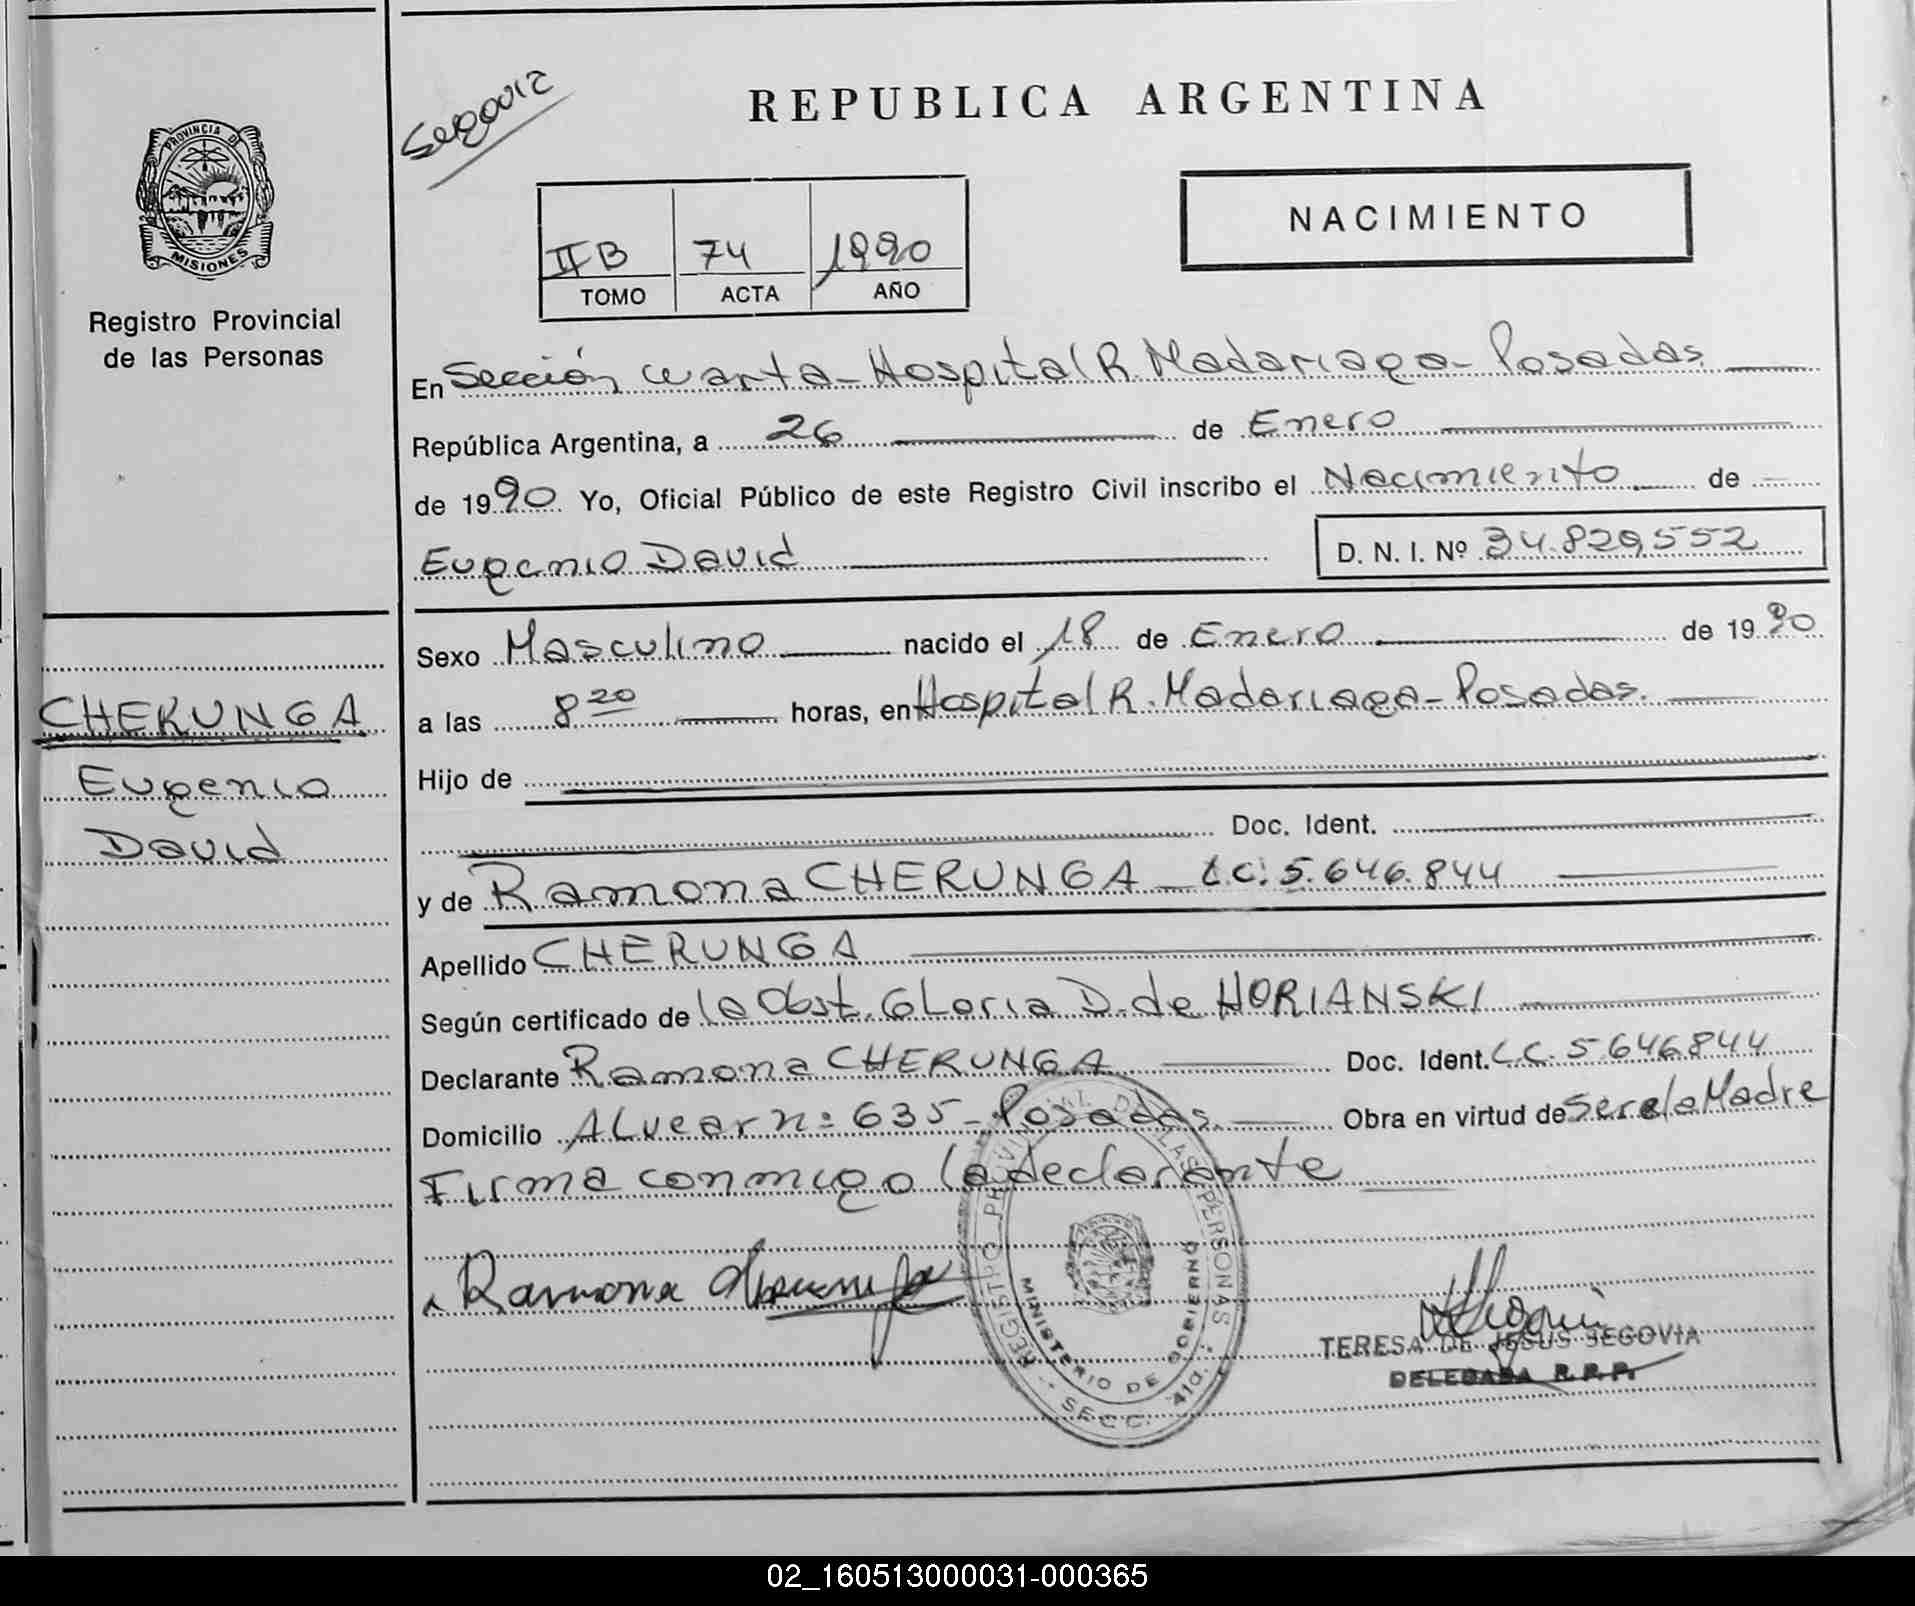 Segovia
REPUBLICA ARGENTINA
PROVINCIA DE MISIONES
Registro Provincial
de las Personas
II B 74 1990
TOMO ACTA AÑO
NACIMIENTO
En Sección cuarta - Hospital R. Madariaga - Posadas.
República Argentina, a 26 de Enero
de 1990 Yo, Oficial Público de este Registro Civil inscribo el Nacimiento de
Eugenio David D. N. I. Nº 34.829.552
Sexo Masculino nacido el 18 de Enero de 1990
a las 8 20 horas, en Hospital R. Madariaga - Posadas.
Hijo de
Doc. Ident.
y de Ramona CHERUNGA L.C. 5.646.844
Apellido CHERUNGA
Según certificado de la Obst. Gloria D. de HORIANSKI
Declarante Ramona CHERUNGA Doc. Ident. L.C. 5.646844
Domicilio Alvear nº 635 - Posadas. Obra en virtud de Ser la Madre
Firma conmigo la declarante
CHERUNGA
Eugenio
David
Ramona Cherunga
REGISTRO PROVINCIAL DE LAS PERSONAS
MINISTERIO DE GOBIERNO
SECC. 4ta.
TERESA DE JESUS SEGOVIA
DELEGADA R.P.P.
02_160513000031-000365